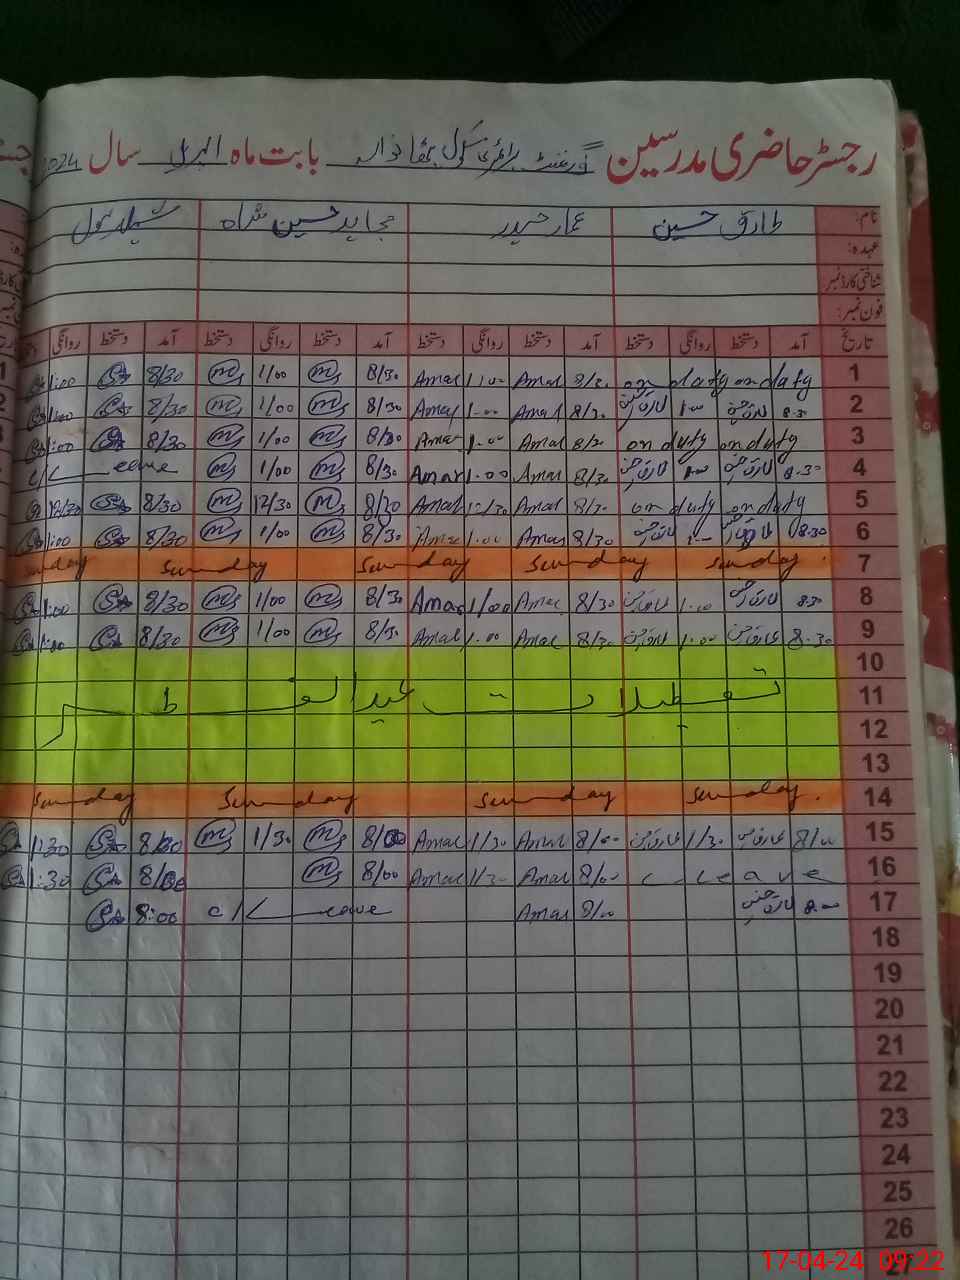 رجسٹر حاضری مدرسین گورنمنٹ پرائمری سکول بابت ماہ اپریل سال 2024
نام: طارق حسین عمار حیدر مجاہد حسین شاہ
عہدہ:
شناختی کارڈ نمبر:
فون نمبر:
تاریخ آمد دستخط روانگی دستخط آمد دستخط روانگی دستخط آمد دستخط روانگی دستخط آمد دستخط روانگی
1 on duty on duty 8/30 Amar 1.00 Amar 8/30 1/00 8/30 1:00
2 8.30 طارق حسین 1.00 طارق حسین 8/30 Amar 1.00 Amar 8/30 1/00 8/30 1:00
3 on duty on duty 8/30 Amar 1.00 Amar 8/30 1/00 8/30 1:00
4 8.30 طارق حسین 1.00 طارق حسین 8/30 Amar 1.00 Amar 8/30 1/00 C/L eave
5 on duty on duty 8/30 Amar 12/30 Amar 8/30 12/30 8/30 12/30
6 8.30 طارق حسین 1.00 طارق حسین 8/30 Amar 1.00 Amar 8/30 1/00 8/30 1:00
7 Sunday Sunday Sunday Sunday Sunday
8 8.30 طارق حسین 1.00 طارق حسین 8/30 Amar 1/00 Amar 8/30 1/00 8/30 1:00
9 8.30 طارق حسین 1.00 طارق حسین 8/30 Amar 1.00 Amar 8/30 1/00 8/30 1:00
10
11 تعطیلات عید الفطر
12
13
14 Sunday Sunday Sunday Sunday
15 8/00 طارق حسین 1/30 طارق حسین 8/00 Amar 1/30 Amar 8/00 1/30 1:30
16 C Leave 8/00 Amar 1/30 Amar 8/00 8/00 1:30
17 8.00 طارق حسین 8/00 Amar C/L eave 8:00
18
19
20
21
22
23
24
25
26
27
17-04-24 09:22